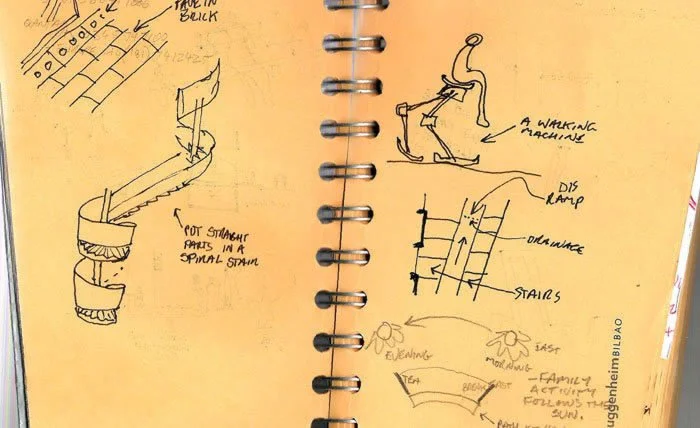 PAVE IN
BRICK
PUT STRAIGHT
PARTS IN A
SPIRAL STAIR
A WALKING
MACHINE
DIS
RAMP
DRAINAGE
STAIRS
EVENING
MORNING
EAST
TEA
BREAKFAST
–FAMILY
ACTIVITY
FOLLOWS THE
SUN.
uggenheimBILBAO